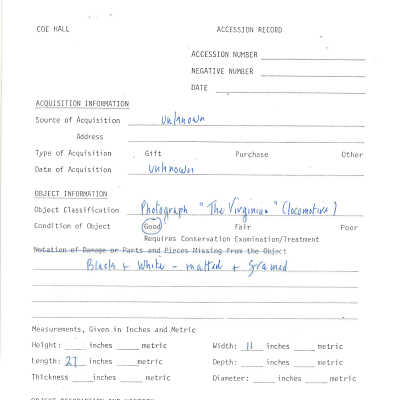 COE HALL ACCESSION RECORD
ACCESSION NUMBER
NEGATIVE NUMBER
DATE
ACQUISITION INFORMATION
Source of Acquisition Unknown
Address
Type of Acquisition Gift Purchase Other
Date of Acquisition Unknown
OBJECT INFORMATION
Object Classification Photograph "The Virginian" (locomotive)
Condition of Object Good Fair Poor
Requires Conservation Examination/Treatment
Notation of Damage or Parts and Pieces Missing from the Object
Black + White - matted + framed
Measurements, Given in Inches and Metric
Height: inches metric Width: 11 inches metric
Length: 27 inches metric Depth: inches metric
Thickness inches metric Diameter: inches metric